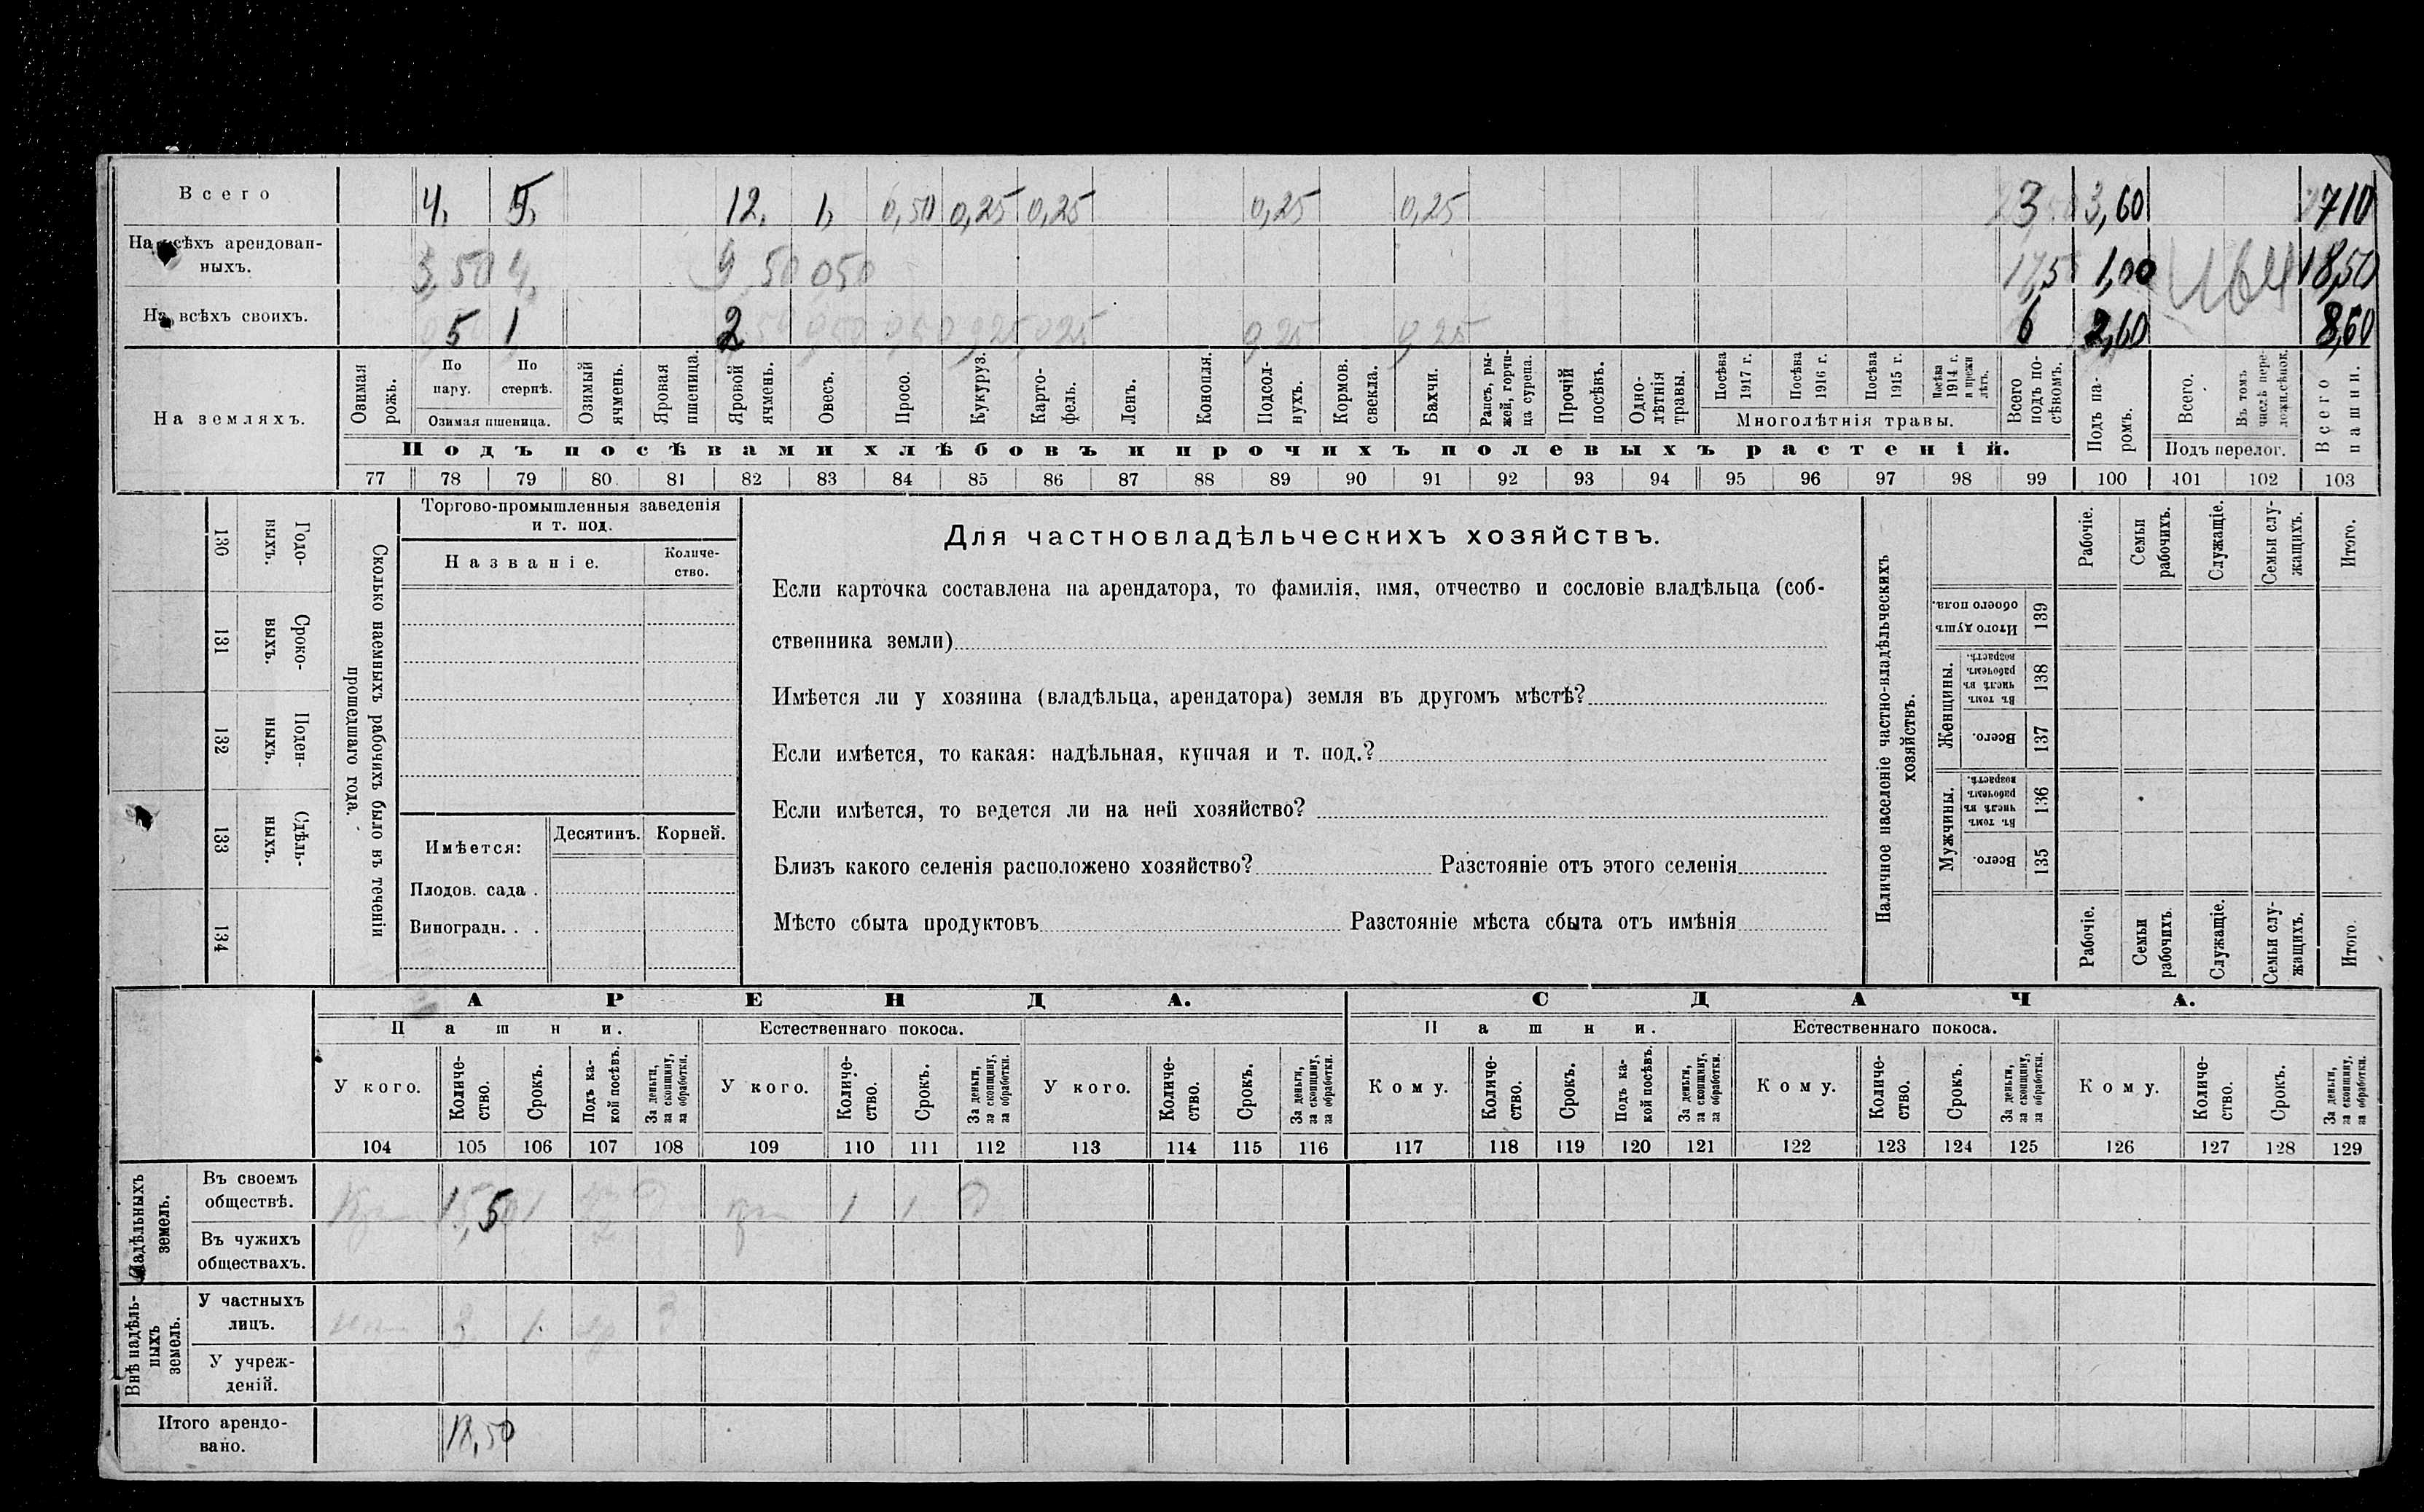 Всего 4, 5, 12, 1, 0,50 0,25 0,25 0,25 0,25 3,60
На всѣхъ арендован-
ныхъ. 3,50 4, 9,50 050 17,5 1,00 18,50
На всѣхъ своихъ. 5 1 2 025 025 025 025 6 2,60 8,60
На земляхъ.
Озимая рожь.
По пару.
По стернѣ.
Озимая пшеница.
Озимый ячмень.
Яровая пшеница.
Яровой ячмень.
Овесъ.
Просо.
Кукуруз.
Карто-
фель.
Ленъ.
Конопля.
Подсол-
нухъ.
Кормов.
свекла.
Бахчи.
Рапсъ, ры-
жей, горчи-
ца сурепа.
Прочій посѣвъ.
Одно-
лѣтнія травы.
Посѣва 1917 г.
Посѣва 1916 г.
Посѣва 1915 г.
Посѣва 1914 г. и прежн лѣтъ.
Многолѣтнія травы.
Всего подъ по-
сѣвомъ.
Подъ па-
ромъ.
Всего.
Въ томъ числѣ пере-
Подъ перелог.
Всего пашни.
Подъ посѣвами хлѣбовъ и прочихъ полевыхъ растеній.
77 78 79 80 81 82 83 84 85 86 87 88 89 90 91 92 93 94 95 96 97 98 99 100 101 102 103
130 Годо-
ныхъ.
131 Сроко-
выхъ.
132 Поден-
ныхъ.
133 Сдѣль-
ныхъ.
134
Сколько наемныхъ рабочихъ было въ теченіи
прошедшаго года.
Торгово-промышленныя заведенія
и т. под.
Названіе.
Количе-
ство.
Имѣется:
Десятинъ.
Корней.
Плодов. сада .
Виноградн. . .
Для частновладѣльческихъ хозяйствъ.
Если карточка составлена на арендатора, то фамилія, имя, отчество и сословіе владѣльца (соб-
ственника земли)
Имѣется ли у хозяина (владѣльца, арендатора) земля въ другомъ мѣстѣ?
Если имѣется, то какая: надѣльная, купчая и т. под.?
Если имѣется, то ведется ли на ней хозяйство?
Близъ какого селенія расположено хозяйство? Разстояніе отъ этого селенія
Мѣсто сбыта продуктовъ Разстояніе мѣста сбыта отъ имѣнія
Наличное населеніе частно-владѣльческихъ
хозяйствъ.
Рабочіе.
Семьи рабочихъ.
Служащіе.
Семьи слу-
жащихъ.
Итого.
Итого душъ обоего пола. 139
Женщины.
Въ томъ числѣ въ рабочемъ возрастѣ. 138
Всего. 137
Мужчины.
Въ томъ числѣ въ рабочемъ возрастѣ. 136
Всего. 135
Рабочіе.
Семьи рабочихъ.
Служащіе.
Семьи слу-
жащихъ.
Итого
АРЕНДА. СДАЧА.
Пашни. Естественнаго покоса. Пашни. Естественнаго покоса.
У кого.
Количе-
ство.
Срокъ.
Подъ ка-
кой посѣвъ.
За деньги,
за скопщину,
за обработки.
У кого.
Количе-
ство.
Срокъ.
За деньги,
за скопщину,
за обработки.
У кого.
Количе-
ство.
Срокъ.
За деньги,
за скопщину,
за обработки.
Кому.
Количе-
ство.
Срокъ.
Подъ ка-
кой посѣвъ.
За деньги,
за скопщину,
за обработки.
Кому.
Количе-
ство.
Срокъ.
За деньги,
за скопщину,
за обработки.
Кому.
Количе-
ство.
Срокъ.
За деньги,
за скопщину,
за обработки.
104 105 106 107 108 109 110 111 112 113 114 115 116 117 118 119 120 121 122 123 124 125 126 127 128 129
Надѣльныхъ
земель.
Въ своемъ
обществѣ. 1 1
Въ чужихъ
обществахъ.
Внѣ надѣль-
ныхъ
земель.
У частныхъ
лицъ. 3 1.
У учреж-
деній.
Итого арендо-
вано. 18,50